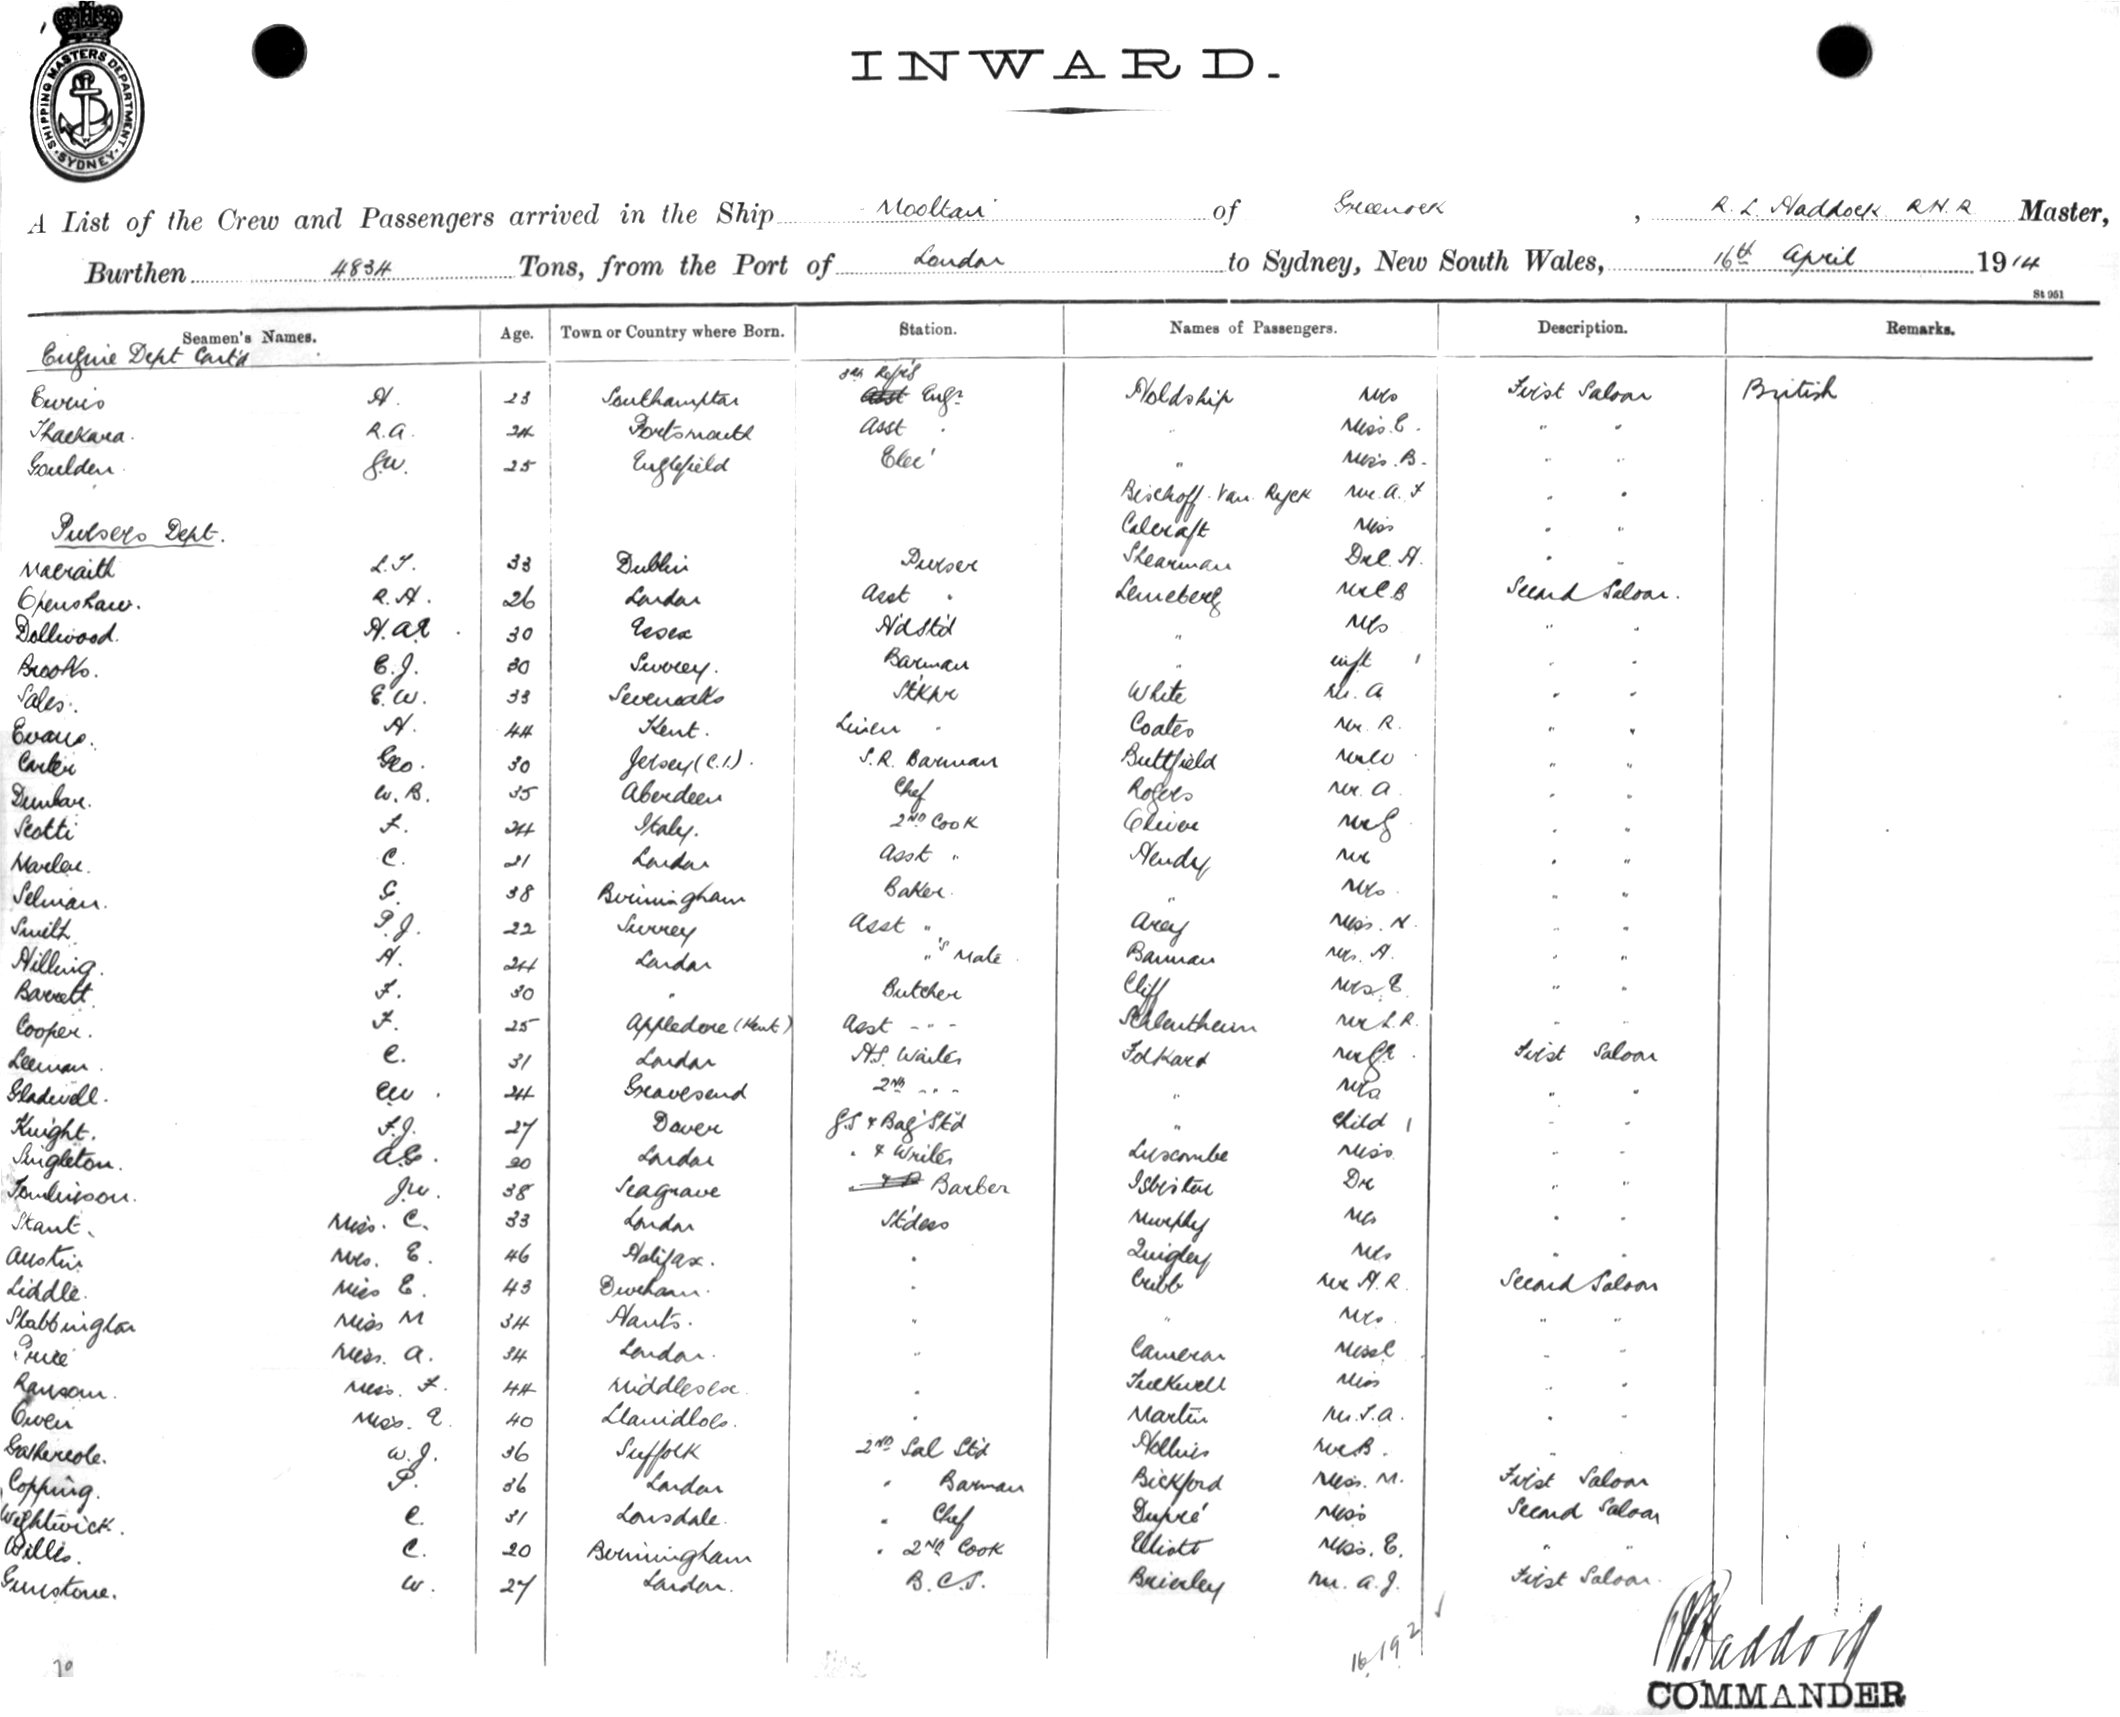 SHIPPING MASTERS DEPARTMENT
SYDNEY
INWARD.
A List of the Crew and Passengers arrived in the Ship Mooltan of Greenock, R. L. Haddock R.N.R Master,
Burthen 4834 Tons, from the Port of London to Sydney, New South Wales, 16th April 1914
St 951
Seamen's Names. Age. Town or Country where Born. Station. Names of Passengers. Description. Remarks.
Engine Dept Cont'd
H. 23 Southampton Engr Holdship Mrs First Saloon British
Thackara. R.A. 24 Portsmouth Asst " " Miss. E. " "
Goulden J.W. 25 Englefield Elec' " Miss. B. " "
Bischoff. Van. Ryck Mr. A. F " "
Pursers Dept. Calcraft Miss " "
Macraith L.T. 33 Dublin Purser Shearman Dr C. H. " "
Openshaw. R.H. 26 London Asst " Leneberg Mr C B Second Saloon.
Dollwood. H. A E 30 Essex Hd Std " Mrs " "
Brooks. E.J. 30 Surrey. Barman " inft 1 " "
Sales. E.W. 33 Sevenoaks Stkpr White Mr. A " "
Evans. H. 44 Kent. Linen " Coates Mr. R. " "
Carter Geo. 30 Jersey (C.I.). S.R. Barman Buttfield Mr W " "
Dunbar. W. B. 35 Aberdeen Chef Rogers Mr. A " "
Scotti F. 24 Italy. 2ND Cook Oliver Mr G " "
C. 21 London Asst " Hendy Mr " "
Selman. G. 38 Birmingham Baker. " Mrs. " "
Smith P.J. 22 Surrey Asst " Arey Miss. N. " "
Hilling. H. 24 London "'s Mate Barman Mrs. H. " "
Barrett F. 30 " Butcher Cliff Mrs. E. " "
Cooper. F. 25 Appledore (Kent) Asst - - - Schlentheim Mr L.R. " "
Leeman. C. 31 London H.S. Waiter Folkard Mr First Saloon
Gladwell. C W. 24 Gravesend 2ND - - - " Mrs " "
Knight. F.J. 27 Dover G.S & Bag' Std " Child 1 " "
Singleton. A.G. 20 London " & Writer Luscombe Miss " "
Tomlinson. J.W. 38 Seagrave Barber Isbister Dr " "
Stant. Miss. C. 33 London St'dess Murphy Mrs " "
Austin Mrs. E. 46 Halifax. " Quigley Mrs " "
Liddle. Miss E. 43 Durham. " Cribb Mr H.R. Second Saloon
Stabbington Miss M 34 Hants. " " Mrs " "
Price Miss. A. 34 London. " Cameron Miss C " "
Ransom. Miss. F. 44 Middlesex " Truckwell Miss " "
Owen Miss. E. 40 Llanidloes. " Martin Mr. T. A. " "
Gathercole. W.J. 36 Suffolk 2ND Sal Std Hollins Mr B. " "
Copping. P. 36 London " Barman Bickford Miss. M. First Saloon
Wightwick. C. 31 Lonsdale. " Chef Dupré Miss Second Saloon
Willis. C. 20 Birmingham " 2ND Cook Elliott Miss. E. " "
Gunstone. W. 27 London. B.C.S. Brierley Mr. A. J. First Saloon.
16 19 2
Haddock
COMMANDER